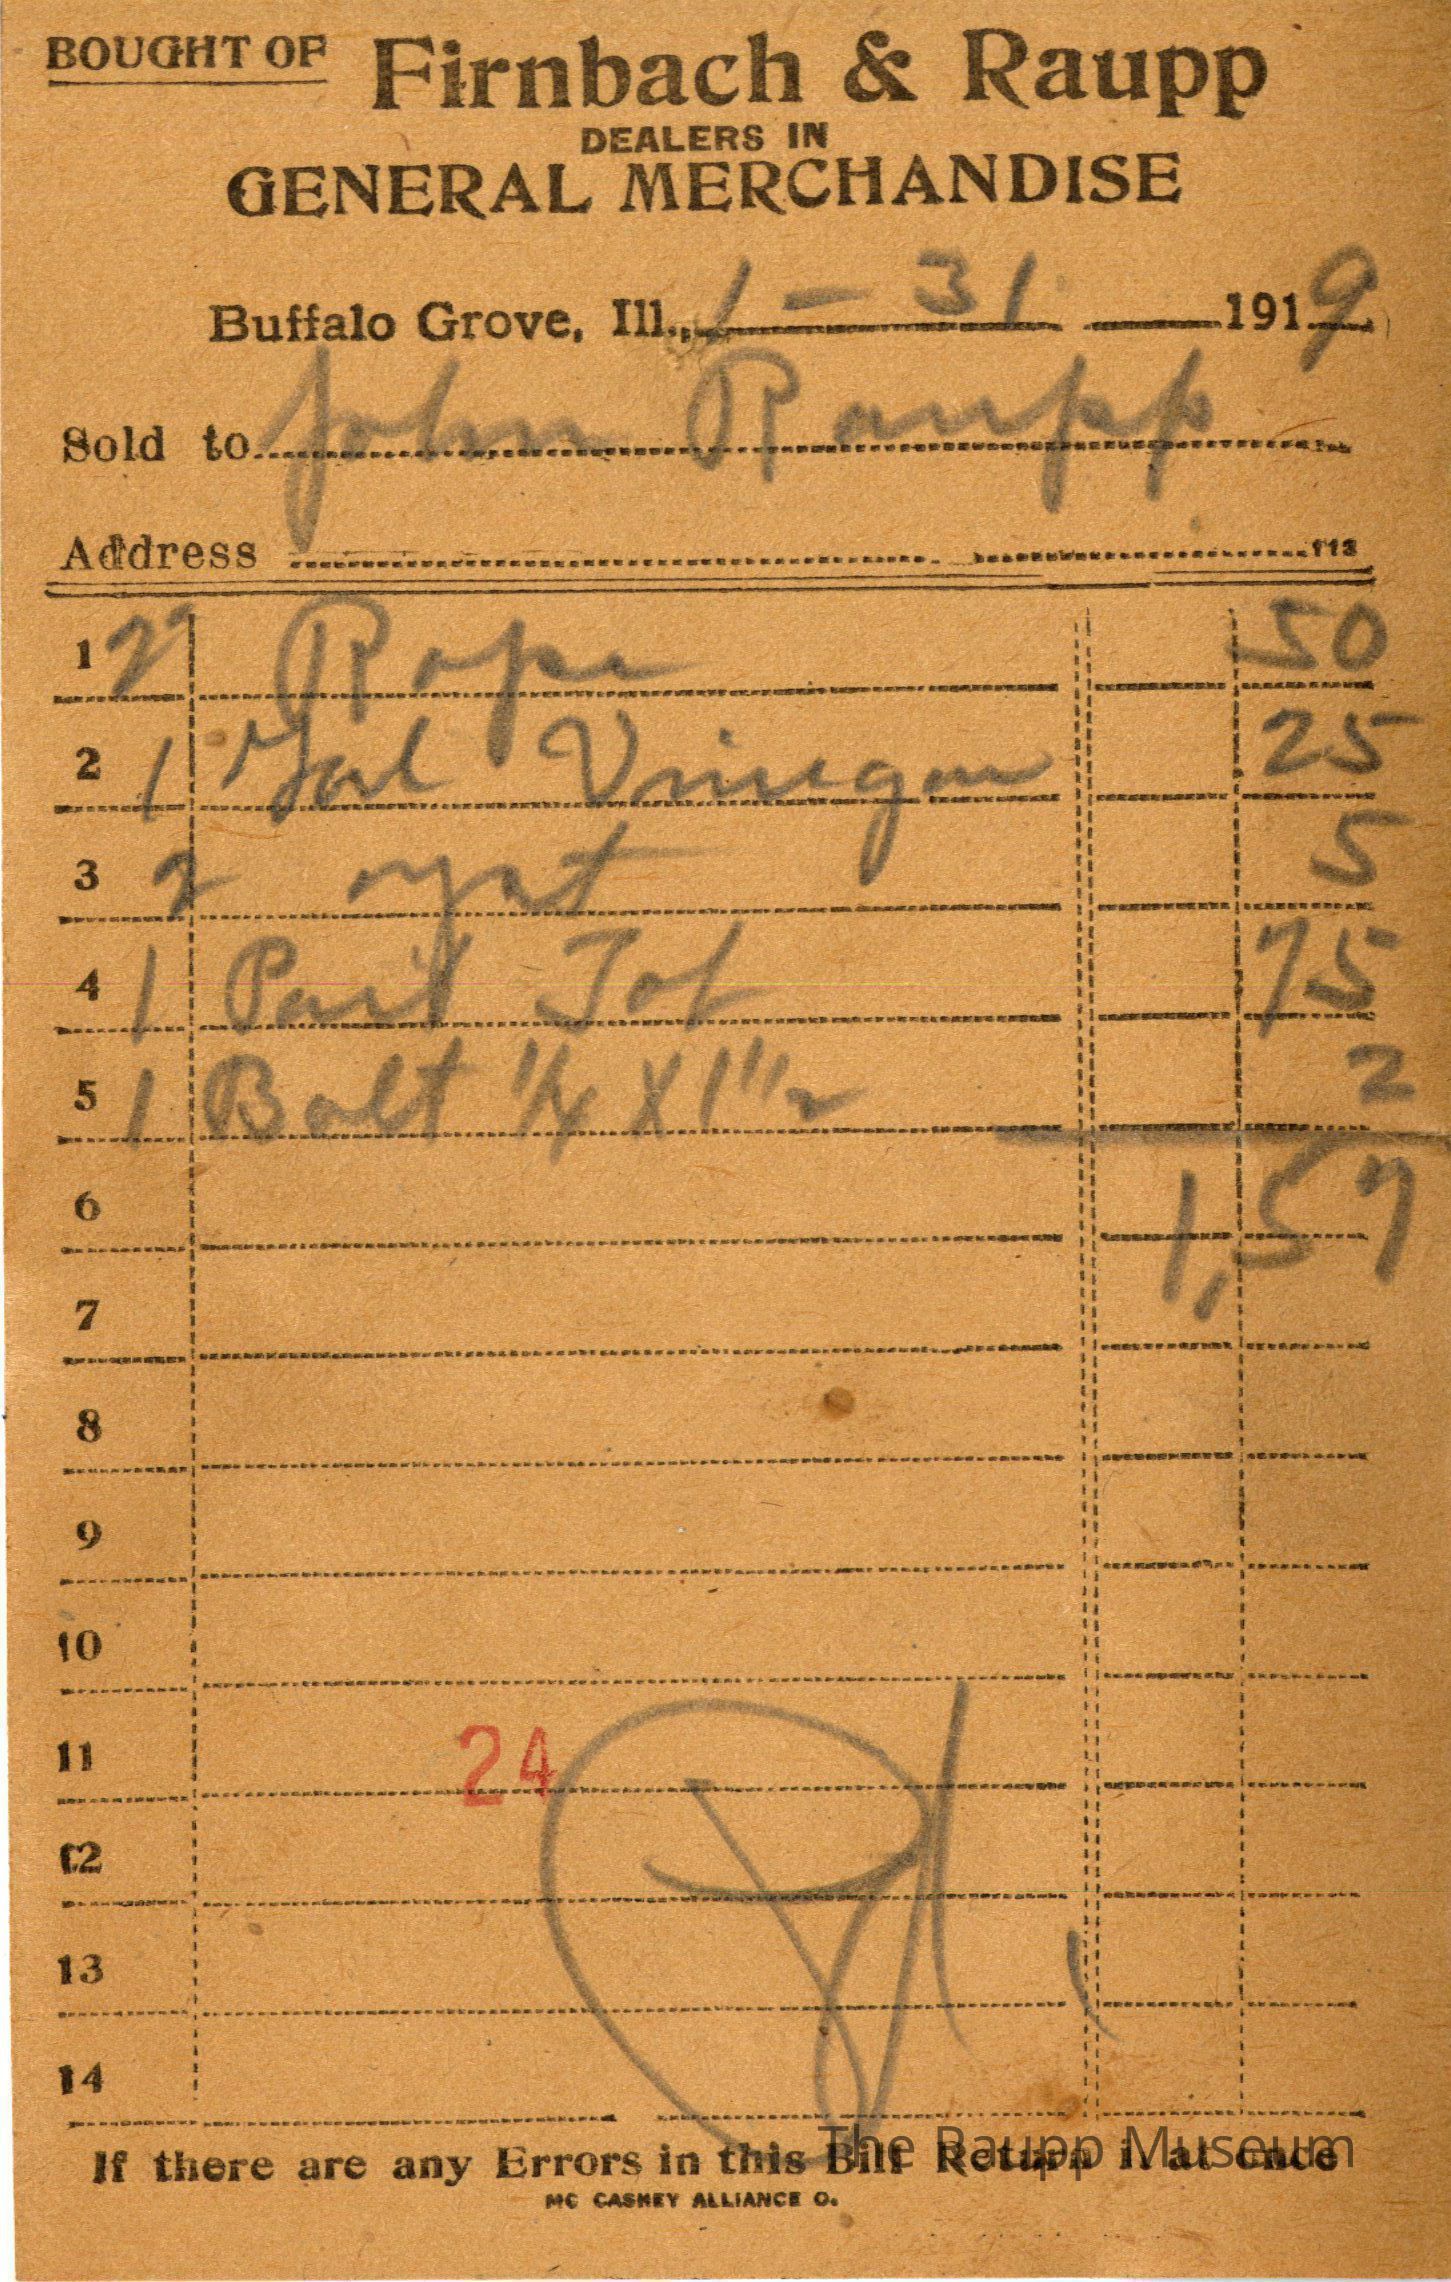 BOUGHT OF Firnbach & Raupp
DEALERS IN
GENERAL MERCHANDISE
Buffalo Grove, Ill., 1-31 1919
Sold to John Raupp
Address
1 Rope 50
2 1 Gal Vinegar 25
3 2 5
4 1 Pail Tob 75
5 1 Bolt 1/4 X 1 1/2 2
6 1,57
7
8
9
10
11 24
12
13
14
If there are any Errors in this Bill Return it at once
The Raupp Museum
MC CASKEY ALLIANCE O.